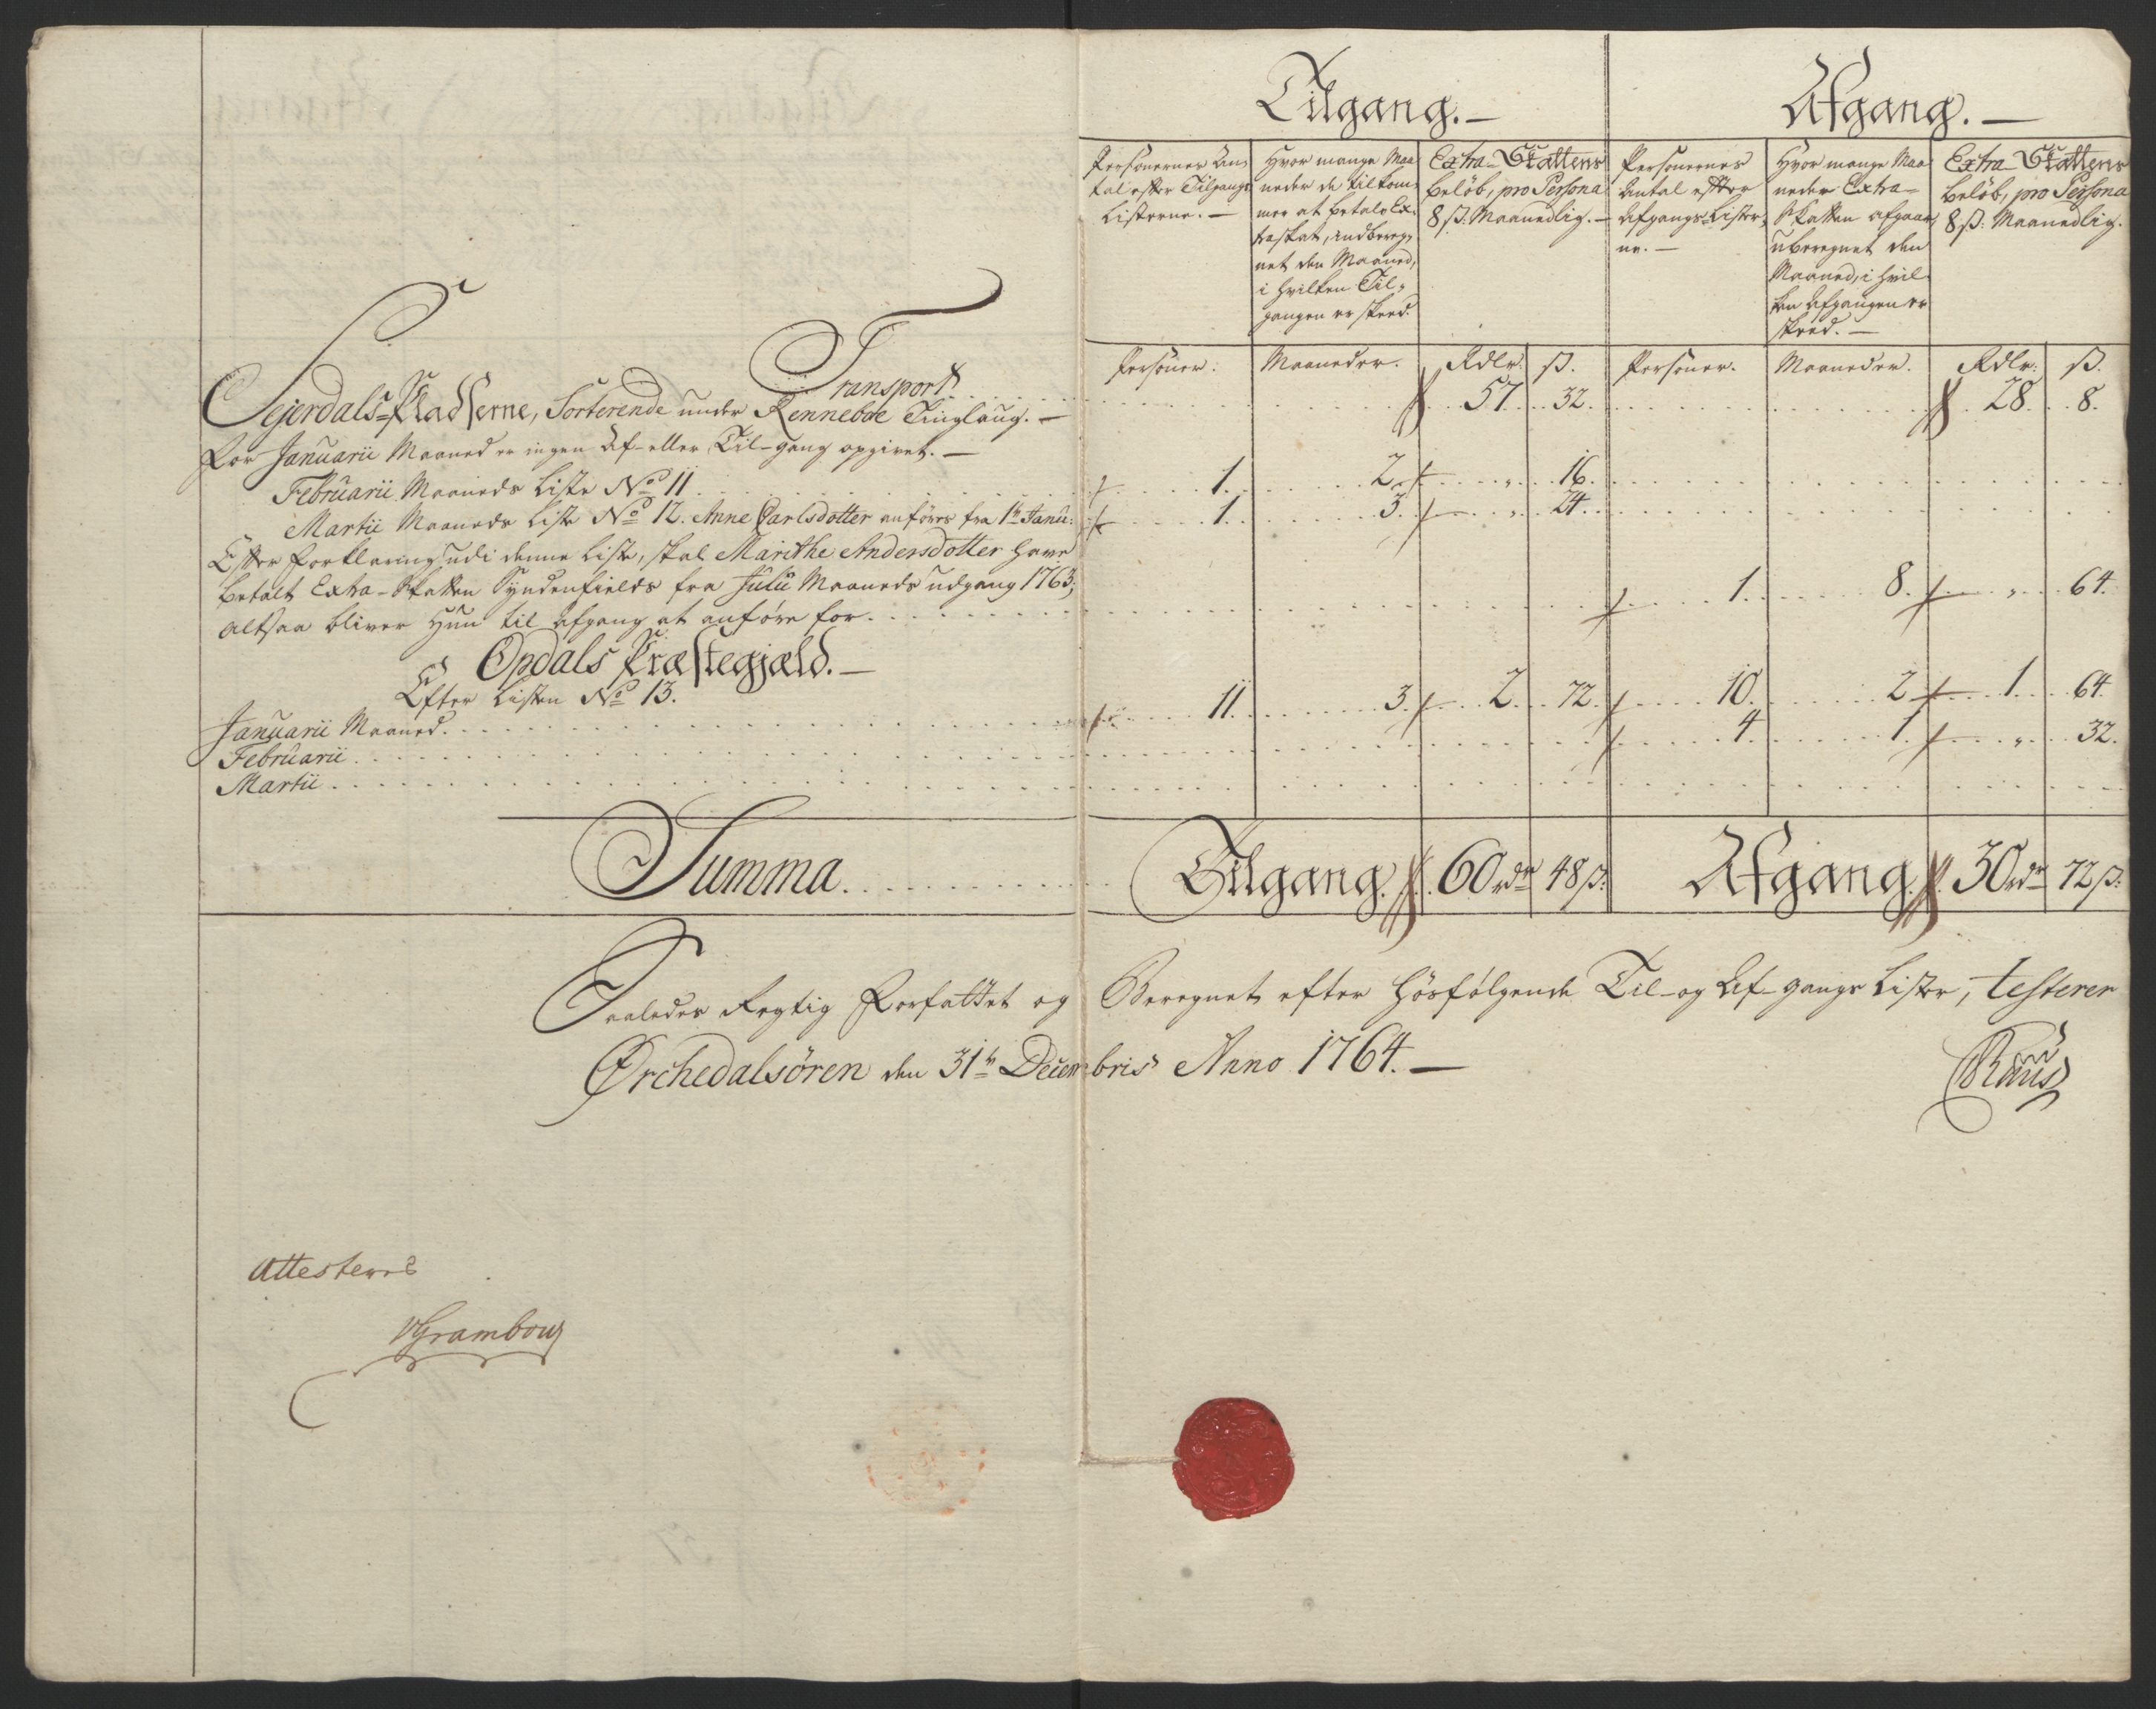 Tilgang.— Afgang.—
Personernes An=
tal efter Tilgangs
Listerne.—
Hvor mange Maa
neder de tilkom=
mer at betale Ex=
traskat, indbereg=
net den Maaned,
i hvilken Til=
gangen er skeed.
Extra-Skattens
beløb, pro Persona
8 ß. Maanedlig.—
Personernes
Antal efter
Afgangs-Lister=
ne.—
Hvor mange Maa=
neder Extra-
Skatten afgaar,
uberegnet den
Maaned, i hvil=
ken Afgangen er
skeed.—
Extra-Skattens
beløb, pro Persona
8 ß: Maanedlig.
Personer. Maaneder. Rdlr: ß. Personer. Maaneder. Rdlr: ß.
Transport 57. 32. 28. 8.
Sejerdals-Pladserne, Sorterende under Renneboe Tinglaug.—
For Januarii Maaned er ingen Af- eller Til-gang opgivet.—
Februarii Maaneds Liste No 11 1. 2. " 16.
Martii Maaneds Liste No 12. Anne Carlsdotter anføres fra 1te Janu: 1. 3. " 24.
Efter forklaring udi denne Liste, skal Marithe Andersdotter have
betalt Extra-Skatten Syndenfields fra Julii Maaneds udgang 1763,
altsaa bliver Hun til afgang at anføre for 1. 8. " 64.
Opdals Præstegjæld.—
Efter Listen No 13.
Januarii Maaned. 11. 3. 2. 72. 10. 2 1. 64.
Februarii 4 1. " 32.
Martii
Summa. Tilgang. 60 rdr 48 ß: Afgang. 30 rdr 72 ß:
Saaledes Rigtig Forfattet og Beregnet efter Hosfølgende Til- og Af-gangs Lister, testerer
Ørchedalsøren den 31te Decembris Anno 1764.—
Attesteres